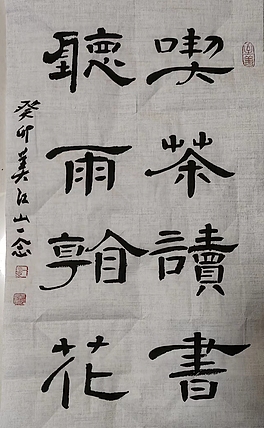 喫茶讀書
聽雨花
癸卯美江山一念